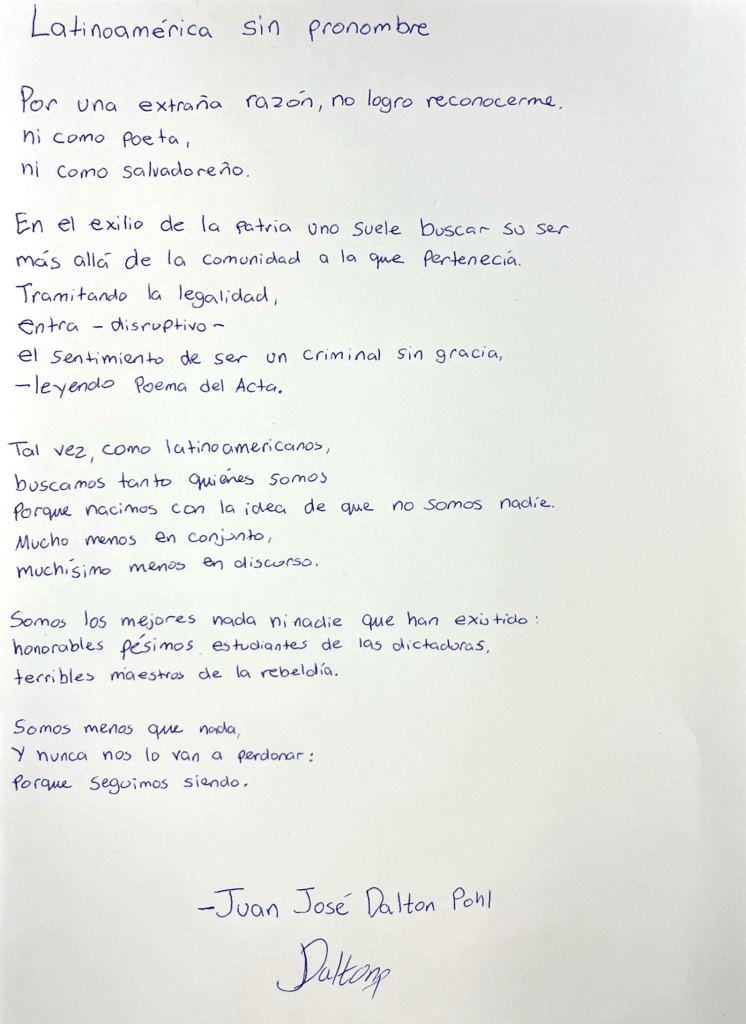 Latinoamérica sin pronombre
Por una extraña razón, no logro reconocerme,
ni como poeta,
ni como salvadoreño.
En el exilio de la patria uno suele buscar su ser
más allá de la comunidad a la que pertenecía.
Tramitando la legalidad,
entra - disruptivo -
el sentimiento de ser un criminal sin gracia,
-leyendo Poema del Acta.
Tal vez, como latinoamericanos,
buscamos tanto quiénes somos
porque nacimos con la idea de que no somos nadie.
Mucho menos en conjunto,
muchísimo menos en discurso.
Somos los mejores nada ni nadie que han existido:
honorables pésimos estudiantes de las dictadoras,
terribles maestros de la rebeldía.
Somos menos que nada,
Y nunca nos lo van a perdonar:
Porque seguimos siendo.
-Juan José Dalton Pohl
Daltonp